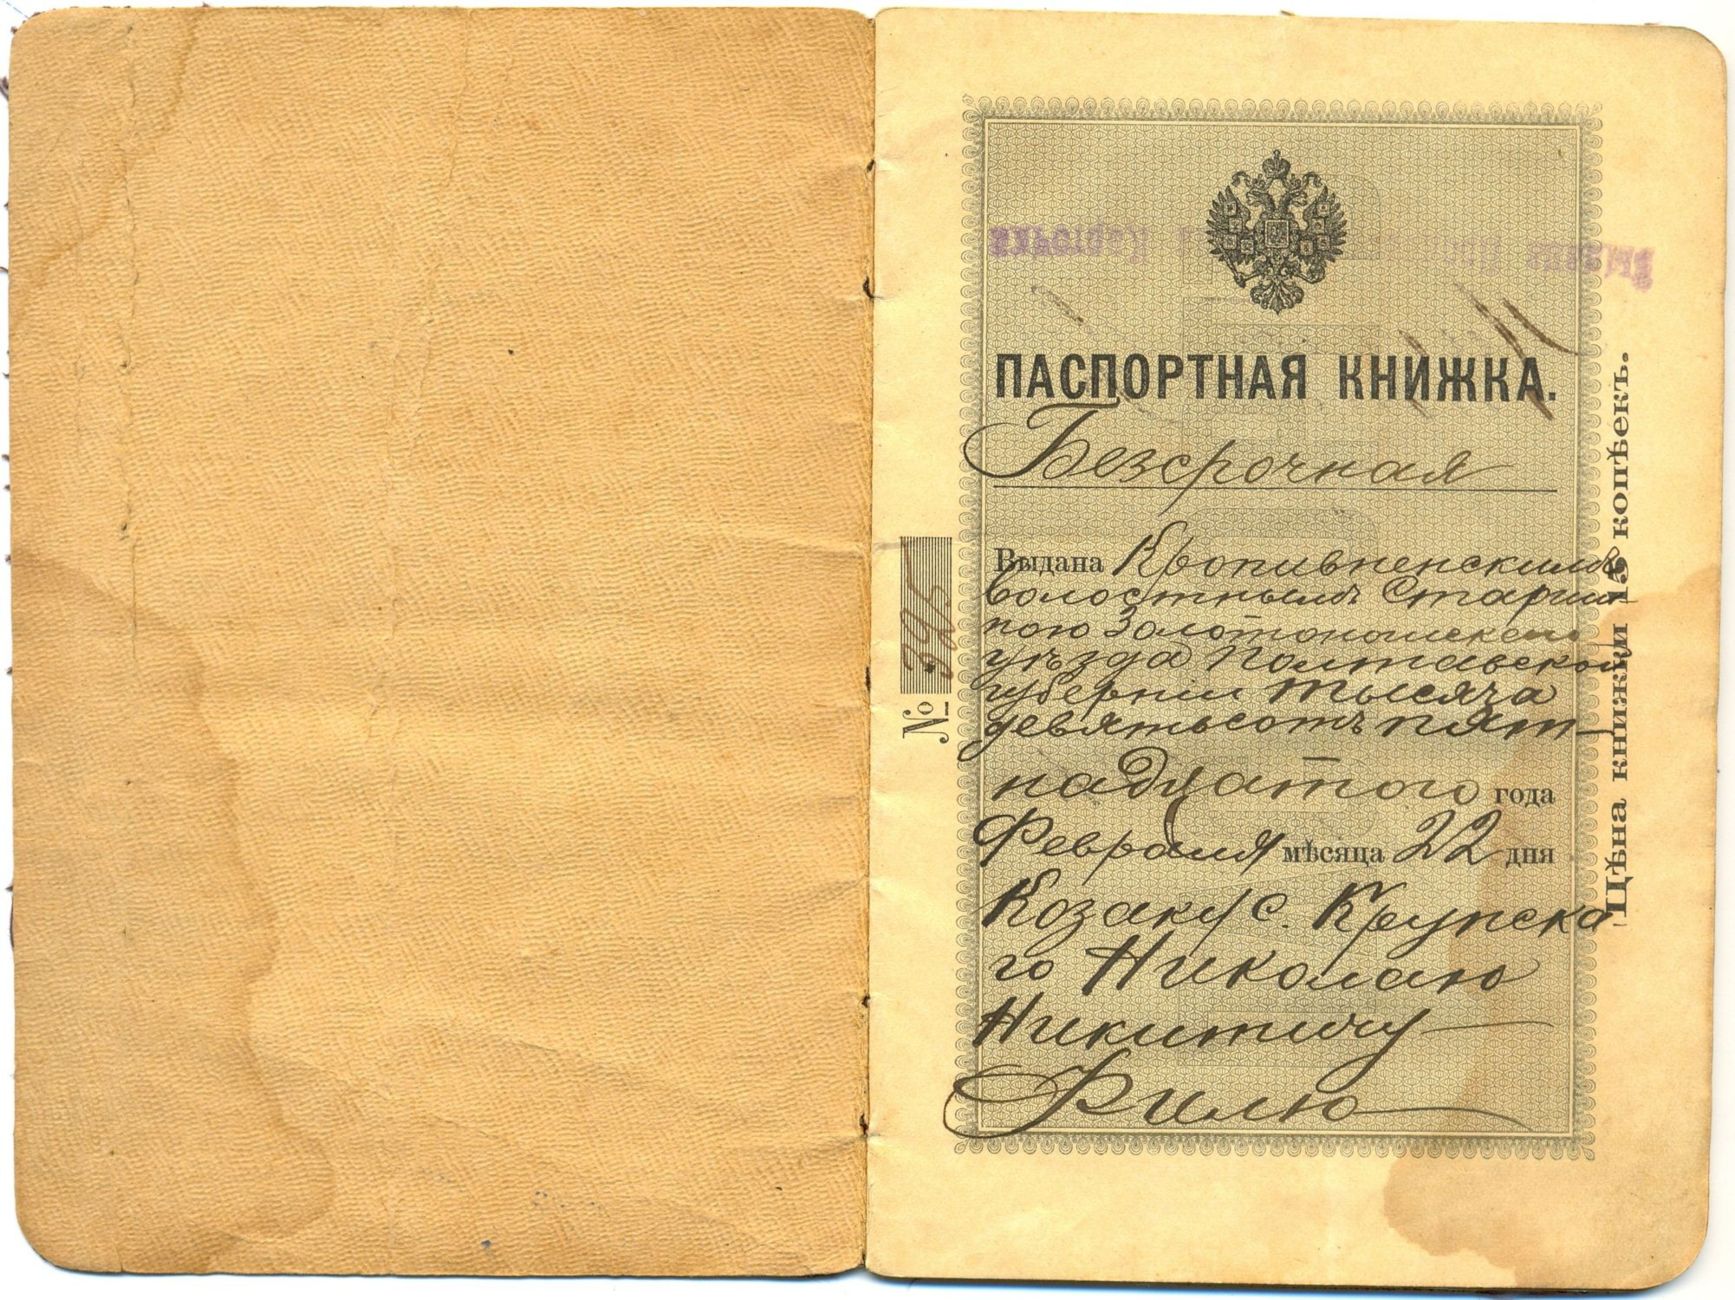 ПАСПОРТНАЯ КНИЖКА.
Безсрочная
Выдана Кропивненскимъ
волостнымъ Старши
ною Золотоношскаго
уѣзда Полтавской
губерніи тысяча
девятьсотъ пят
надцатого года
Февраля мѣсяца 22 дня
Козаку с. Крупска
го Николаю
Никитичу
Филю
№ 395
Цѣна книжки 15 копѣекъ.